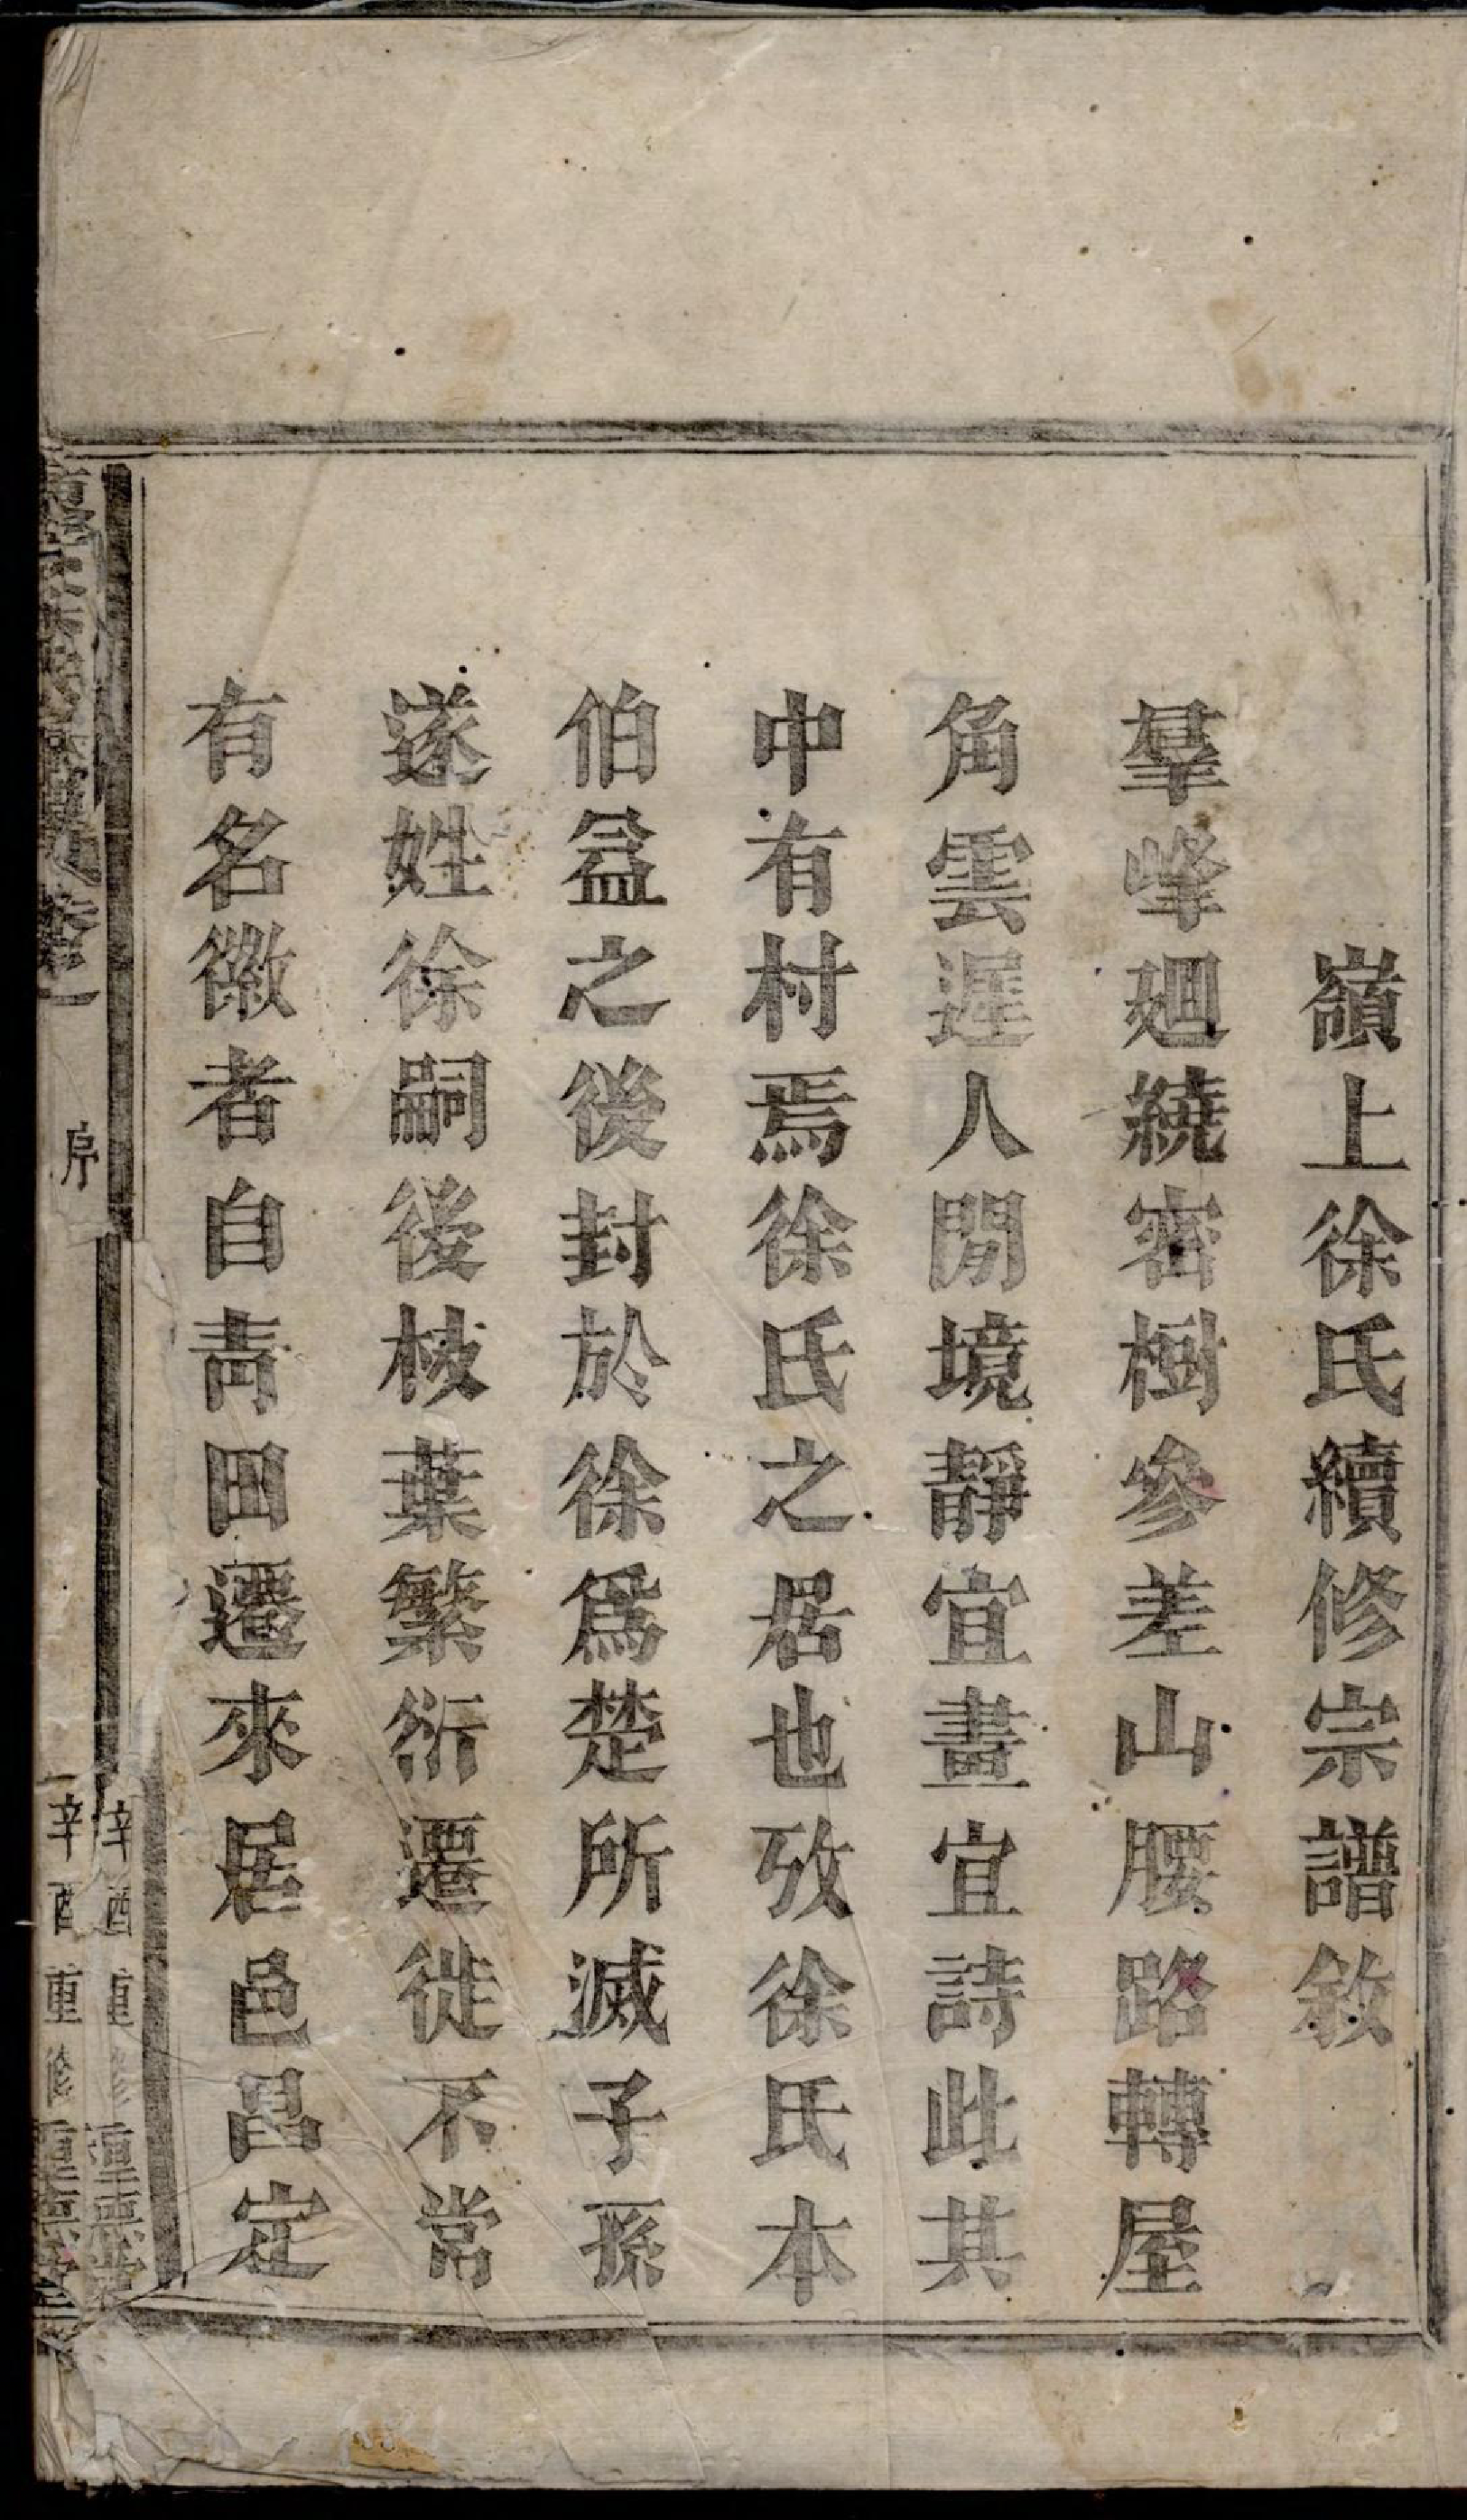 嶺上徐氏續修宗譜敘
羣峰廻繞密樹參差山腰路轉屋
角雲遲人閒境靜宜畫宜詩此其
中有村焉徐氏之居也攷徐氏本
伯益之後封於徐爲楚所滅子孫
遂姓徐嗣後枝葉繁衍遷徙不常
有名徽者自靑田遷來居邑昌定
卷一
序
辛酉重修
辛酉重修